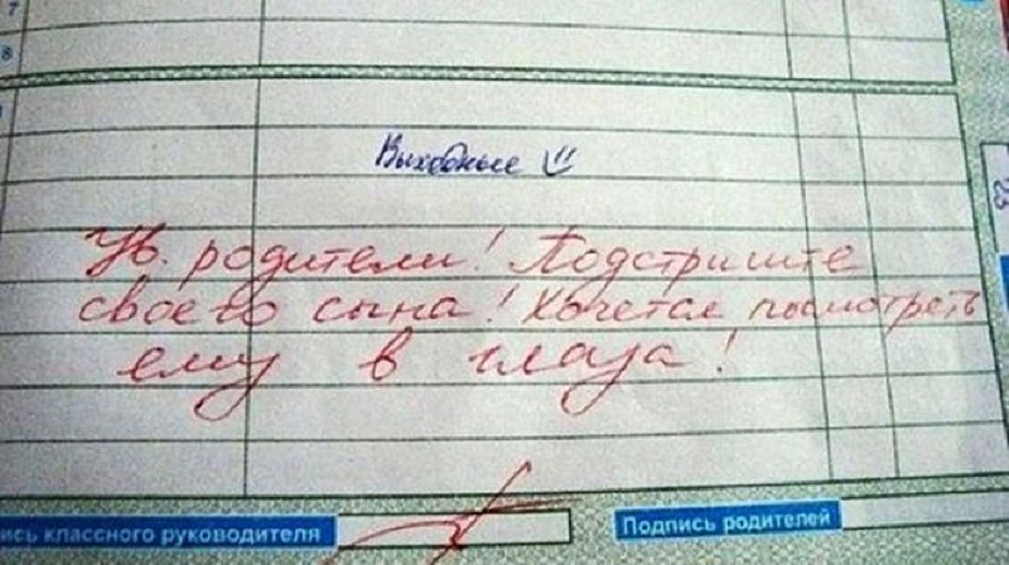 7
8
Выходные
Ув. родители! Подстригите
своего сына! Хочется посмотреть
ему в глаза!
23
ись классного руководителя
Подпись родителей